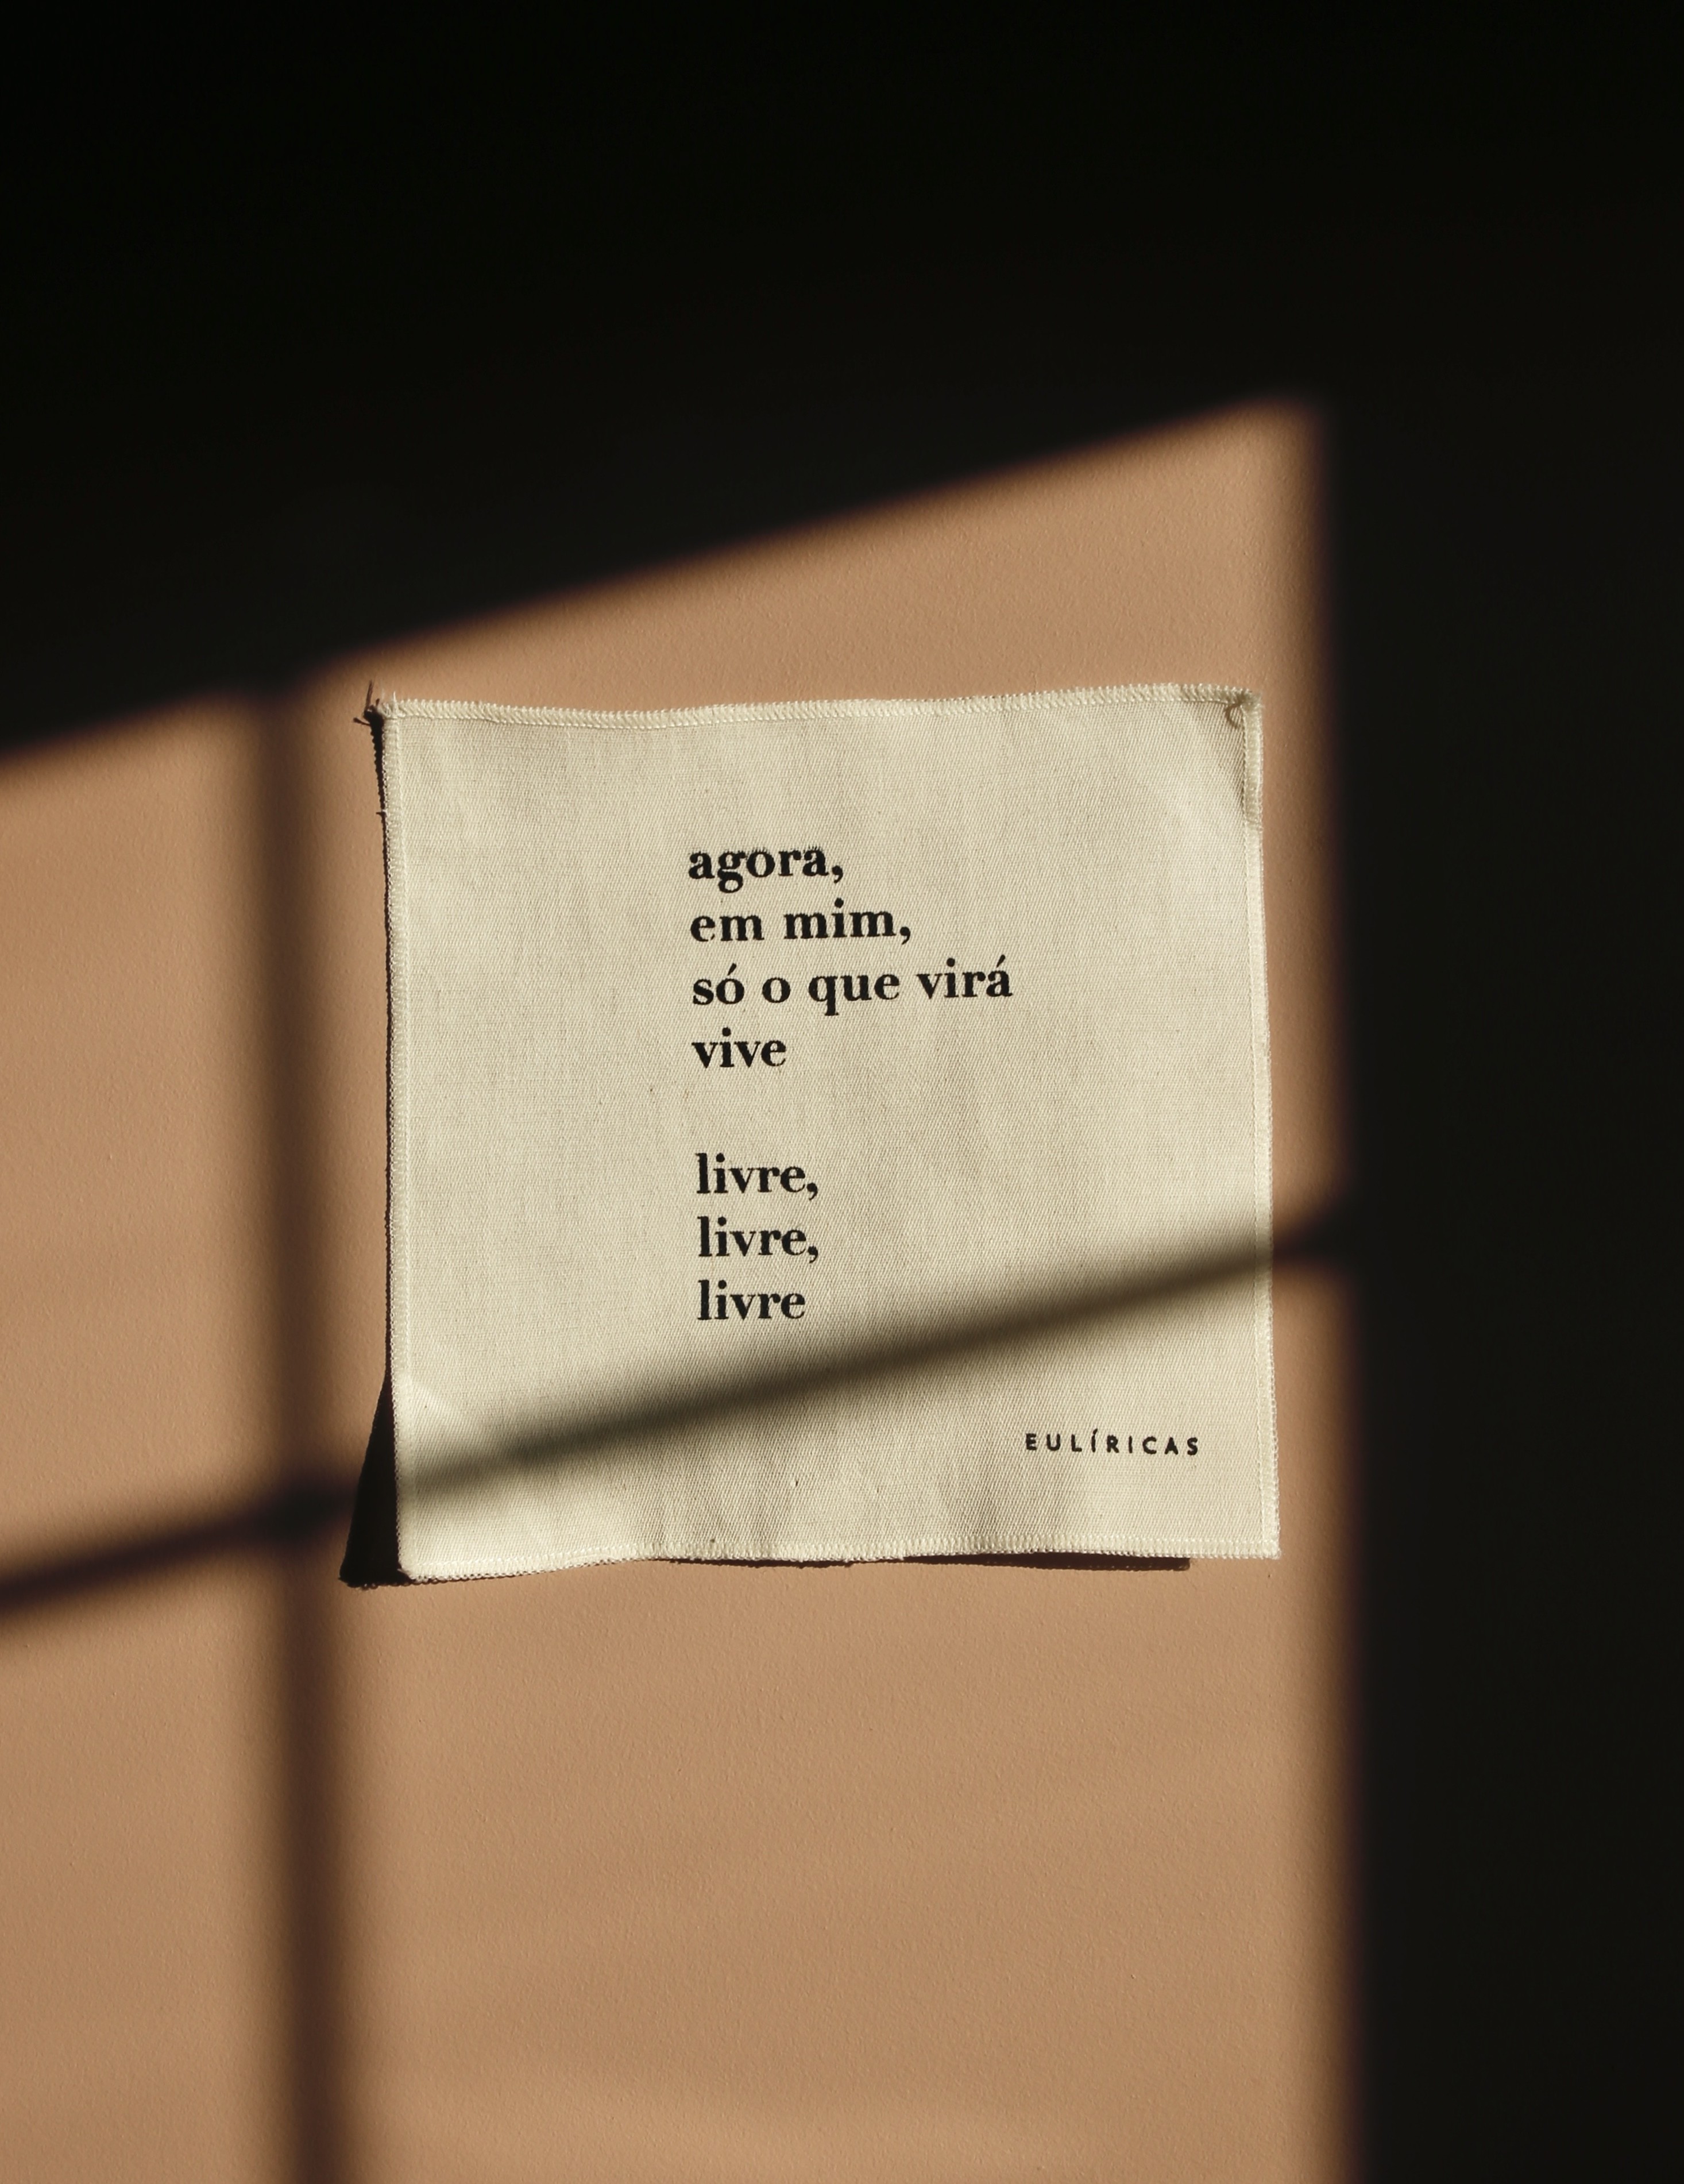 agora,
em mim,
só o que virá
vive
livre,
livre,
livre
EULÍRICAS